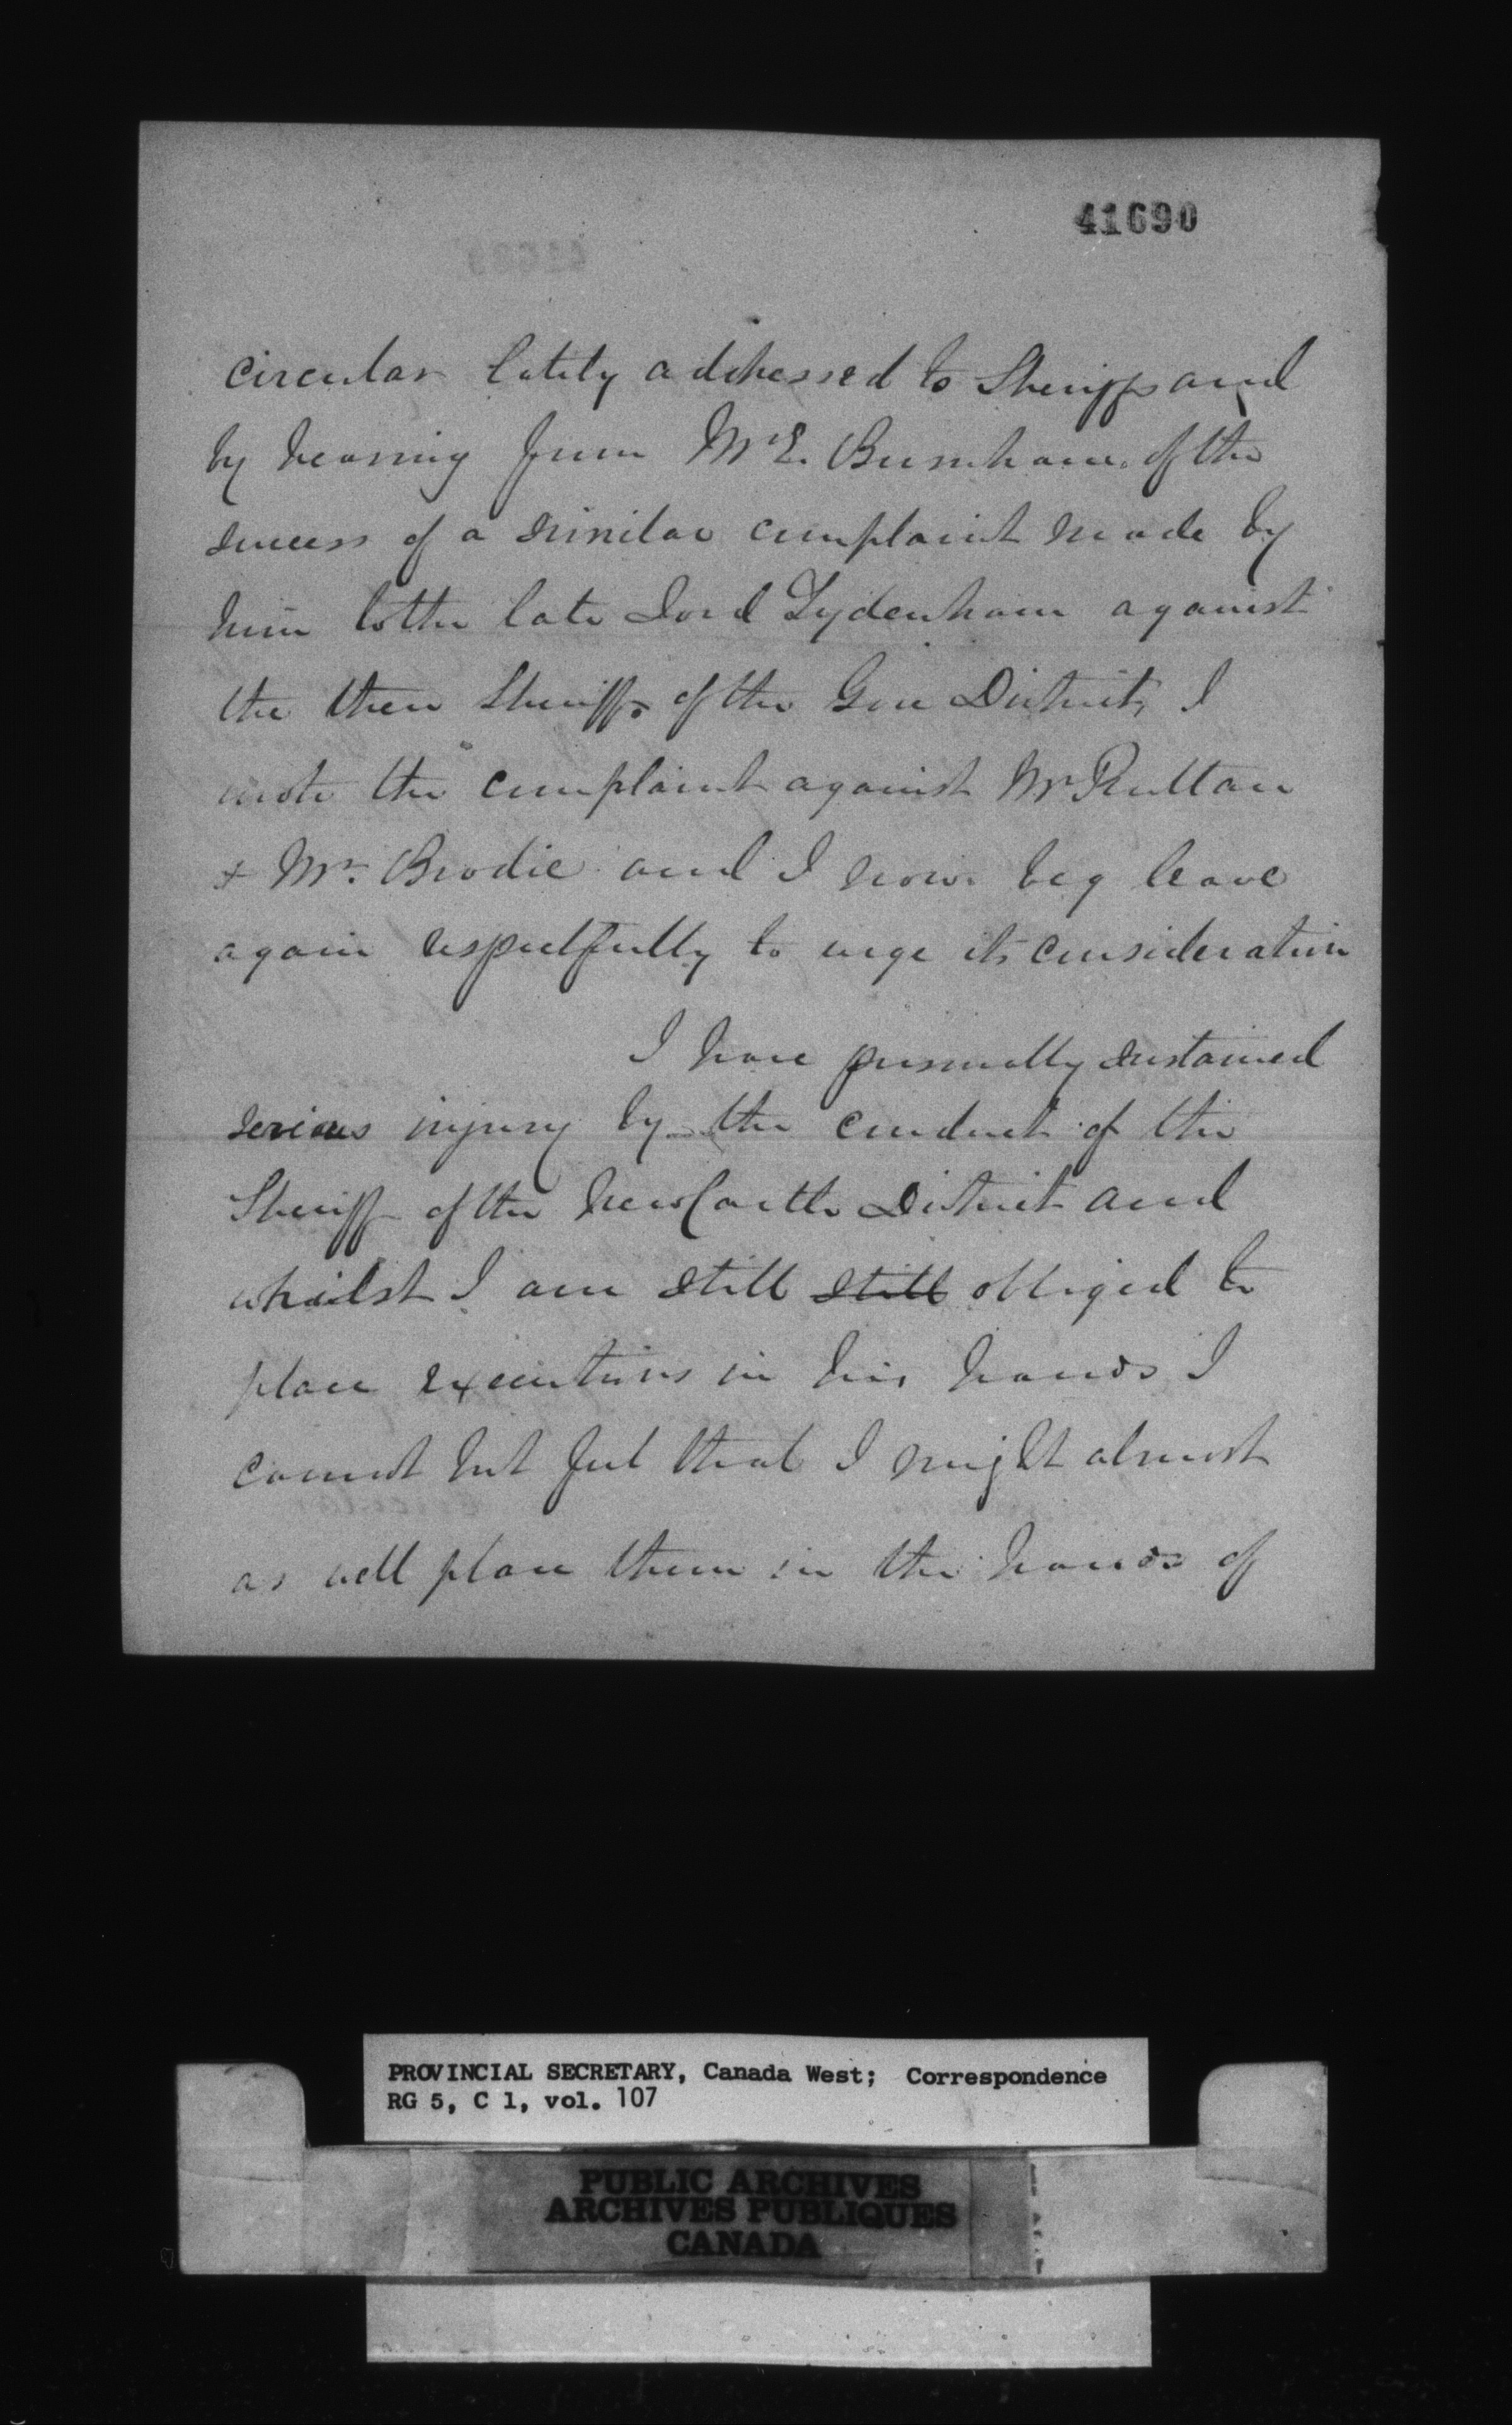 41690
circular lately addressed to Sheriffs and
by hearing from Mr E. Burnham of the
success of a similar complaint made by
him to the late Lord Sydenham against
the then Sheriff of the Gore District, I
wrote the complaint against Mr Ruttan
& Mr. Brodie and I now beg leave
again respectfully to urge its consideration
I have personally sustained
serious injury by the conduct of the
Sheriff of the NewCastle District and
whilst I am still still obliged to
place executions in his hands I
cannot but feel that I might almost
as well place them in the hands of
PROVINCIAL SECRETARY, Canada West; Correspondence
RG 5, C 1, vol. 107
PUBLIC ARCHIVES
ARCHIVES PUBLIQUES
CANADA